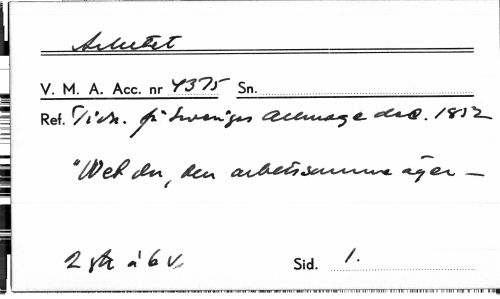 Arbetet
V. M. A. Acc. nr 4375 Sn.
Ref. Tidn. för Sveriges Allmoge 1852
"Wet du, den arbetsamme äger —
2 str. à 6 v. Sid. 1.